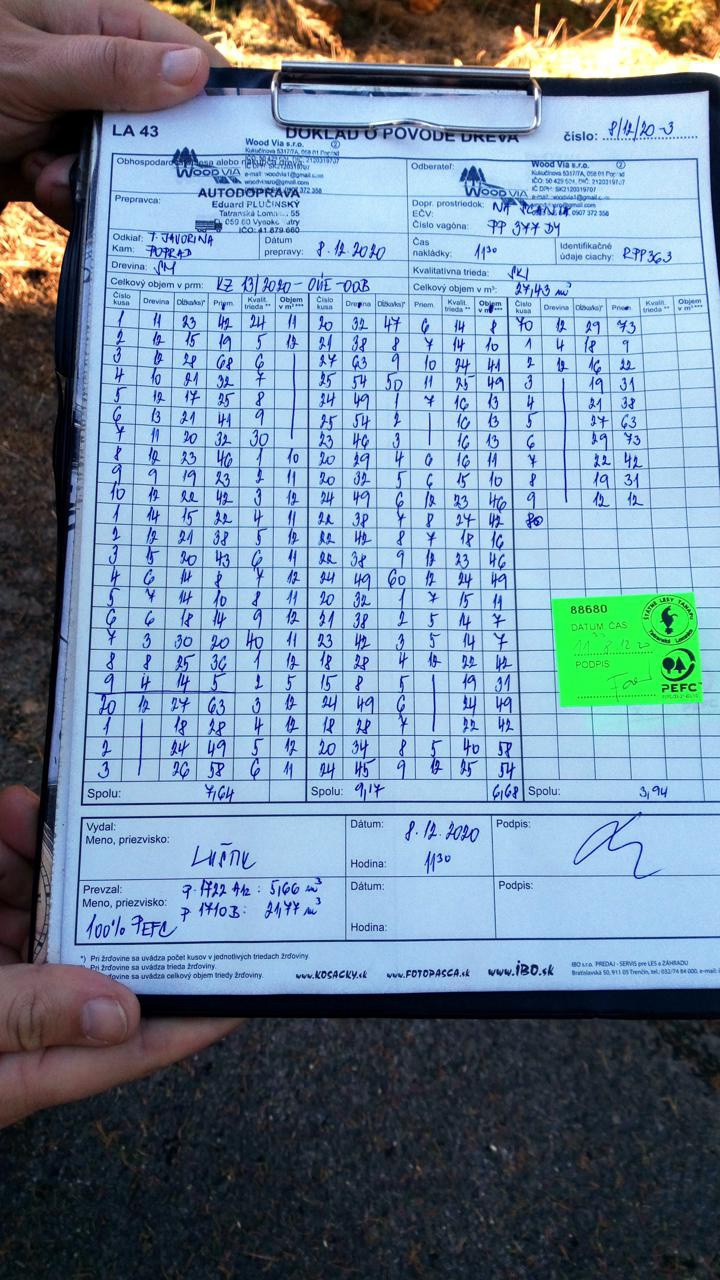 LA 43
DOKLAD O PÔVODE DREVA
číslo: 8/12/20-3
Wood Via s.r.o.
Kukučínova 5317/7A, 058 01 Poprad
Obhospodarovateľ lesa alebo
WOOD VIA
Odberateľ:
Wood Via s.r.o.
Kukučínova 5317/7A, 058 01 Poprad
IČO: 50 429 501, DIČ: 2120319707
IČ DPH: SK2120319707
WOOD VIA
Prepravca:
AUTODOPRAVA
Eduard PLUČINSKÝ
Tatranská Lomn. 55
059 60 Vysoké Tatry
IČO: 41 879 660
Dopr. prostriedok:
EČV:
Číslo vagóna: PP 377 DY
Odkiaľ: T. JAVORINA
Kam: POPRAD
Dátum prepravy: 8.12.2020
Čas nakládky: 1130
Identifikačné údaje ciachy: RPP363
Drevina: SM
Kvalitatívna trieda:
Celkový objem v prm: KZ 13/2020-OÚE-OOB
Celkový objem v m³: 27,43 m³
Číslo kusa Drevina Dĺžka/ks)* Priem. Kvalit. trieda ** Objem v m³ *** Číslo kusa Drevina Dĺžka/ks)* Priem. Kvalit. trieda ** Objem v m³ *** Číslo kusa Drevina Dĺžka/ks)* Priem. Kvalit. trieda ** Objem v m³ ***
1 11 23 42 24 11 20 32 47 6 14 8 70 12 29 73
2 12 15 19 5 12 21 38 8 7 14 10 1 4 18 9
3 12 28 68 6 27 63 9 10 24 41 2 12 16 22
4 10 21 32 7 25 54 50 11 25 49 3 19 31
5 12 17 25 8 24 49 1 7 16 13 4 21 38
6 13 21 41 9 25 54 2 16 13 5 27 63
7 11 20 32 30 23 46 3 16 13 6 29 73
8 12 23 46 1 10 20 29 4 6 16 11 7 22 42
9 9 19 23 2 11 20 32 5 6 15 10 8 19 31
10 12 22 42 3 12 24 49 6 12 23 46 9 12 12
1 14 15 22 4 11 22 38 7 8 27 42 80
2 12 21 38 5 12 22 42 8 7 18 16
3 15 20 43 6 11 22 38 9 12 23 46
4 6 14 8 7 12 24 49 60 12 24 49
5 7 14 10 8 11 20 32 1 7 15 11
6 6 18 14 9 12 21 38 2 5 14 7
7 3 30 20 40 11 23 42 3 5 14 7
8 8 25 36 1 12 18 28 4 12 22 42
9 4 14 5 2 5 15 8 5 19 31
20 12 27 63 3 12 24 49 6 24 49
1 18 28 4 12 18 28 7 22 42
2 24 49 5 12 20 34 8 5 40 58
3 26 58 6 11 24 45 9 12 25 54
88680
DATUM ČAS
PODPIS
ŠTÁTNE LESY TANAPu
Tatranská Lomnica
PEFC
Spolu: 7,64 Spolu: 9,17 6,68 Spolu: 3,94
Vydal:
Meno, priezvisko:
Dátum: 8.12.2020
Hodina: 1130
Podpis:
Prevzal:
Meno, priezvisko:
P. 1722 A12: 5,66 m³
P 1710B: 21,77 m³
100% PEFC
Dátum:
Hodina:
Podpis:
*) Pri žrďovine sa uvádza počet kusov v jednotlivých triedach žrďoviny.
**) Pri žrďovine sa uvádza trieda žrďoviny.
***) Pri žrďovine sa uvádza celkový objem triedy žrďoviny.
www.KOSACKY.sk www.FOTOPASCA.sk www.iBO.sk
IBO s.r.o. PREDAJ - SERVIS pre LES a ZÁHRADU
Bratislavská 50, 911 05 Trenčín, tel.: 032/74 84 000,